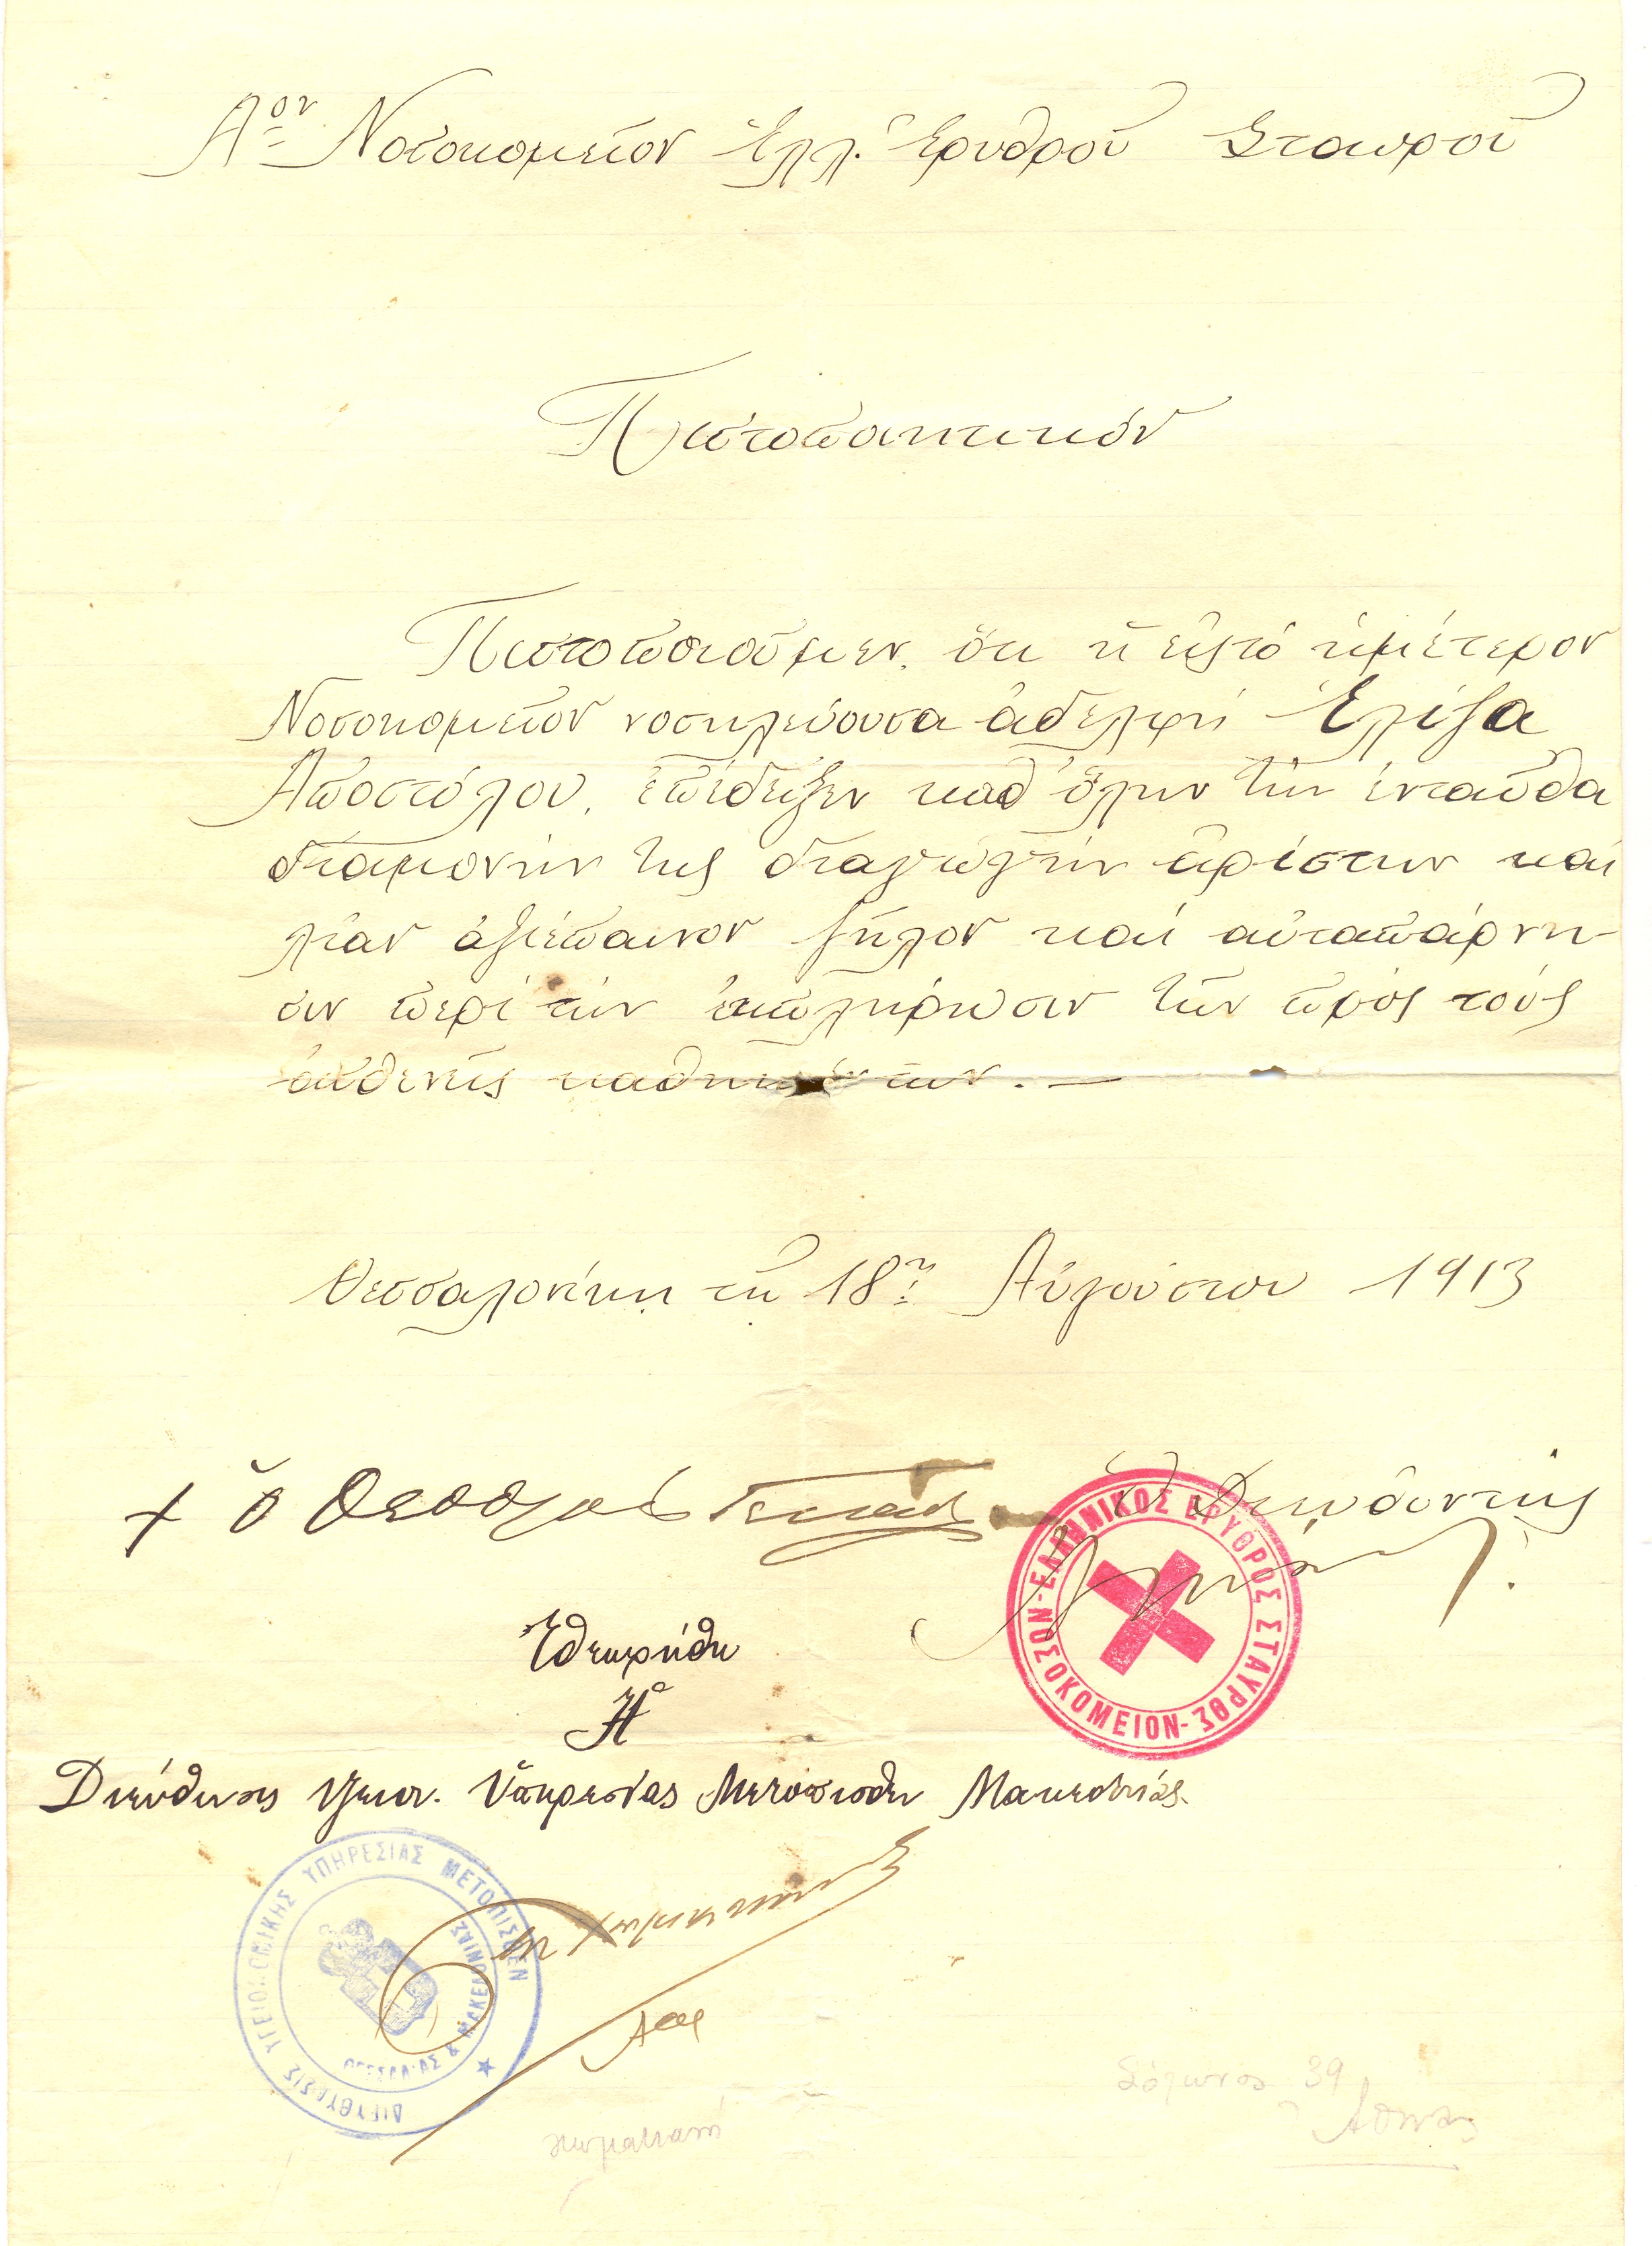 Αον Νοσοκομεῖον Ἑλλ. Ἐρυθροῦ Σταυροῦ
Πιστοποιητικόν
Πιστοποιοῦμεν, ὅτι ἡ εἰς τό ἡμέτερον
Νοσοκομεῖον νοσηλεύουσα ἀδελφή Ἐλίζα
Ἀποστόλου, ἐπέδειξεν καθ' ὅλην τήν ἐνταῦθα
διαμονήν της διαγωγήν ἀρίστην καί
λίαν ἀξιέπαινον ζῆλον καί αὐταπάρνη-
σιν περί τήν ἐκπλήρωσιν τῶν πρός τούς
ἀσθενεῖς καθηκόντων. —
Θεσσαλονίκη τῇ 18ῃ Αὐγούστου 1913
+ ὁ
Ὁ Διευθυντής
ΕΛΛΗΝΙΚΟΣ ΕΡΥΘΡΟΣ ΣΤΑΥΡΟΣ - ΝΟΣΟΚΟΜΕΙΟΝ -
Ἐθεωρήθη
Ἡ
Διεύθυνσις Ὑγειον. Ὑπηρεσίας Μετόπισθεν Μακεδονίας.
ΔΙΕΥΘΥΝΣΙΣ ΥΓΕΙΟΝΟΜΙΚΗΣ ΥΠΗΡΕΣΙΑΣ ΜΕΤΟΠΙΣΘΕΝ
ΘΕΣΣΑΛΙΑΣ & ΜΑΚΕΔΟΝΙΑΣ
Σόλωνος 39
Ἀθήνας